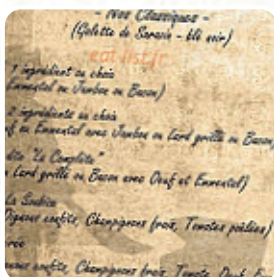 - Nos Classiques -
(Galette de Sarasin - blé noir)
eat-list.fr
1 ingrédient au choix
Emmental ou Jambon ou Bacon)
2 ingrédients au choix
uf ou Emmental avec Jambon ou Lard grillé ou Bacon)
dite "La Complète"
Lard grillé ou Bacon avec Oeuf et Emmental)
La
Oignons confits, Champignons frais, Tomates poêlées)
confits, Champignons frais, Tomate, Oeuf,